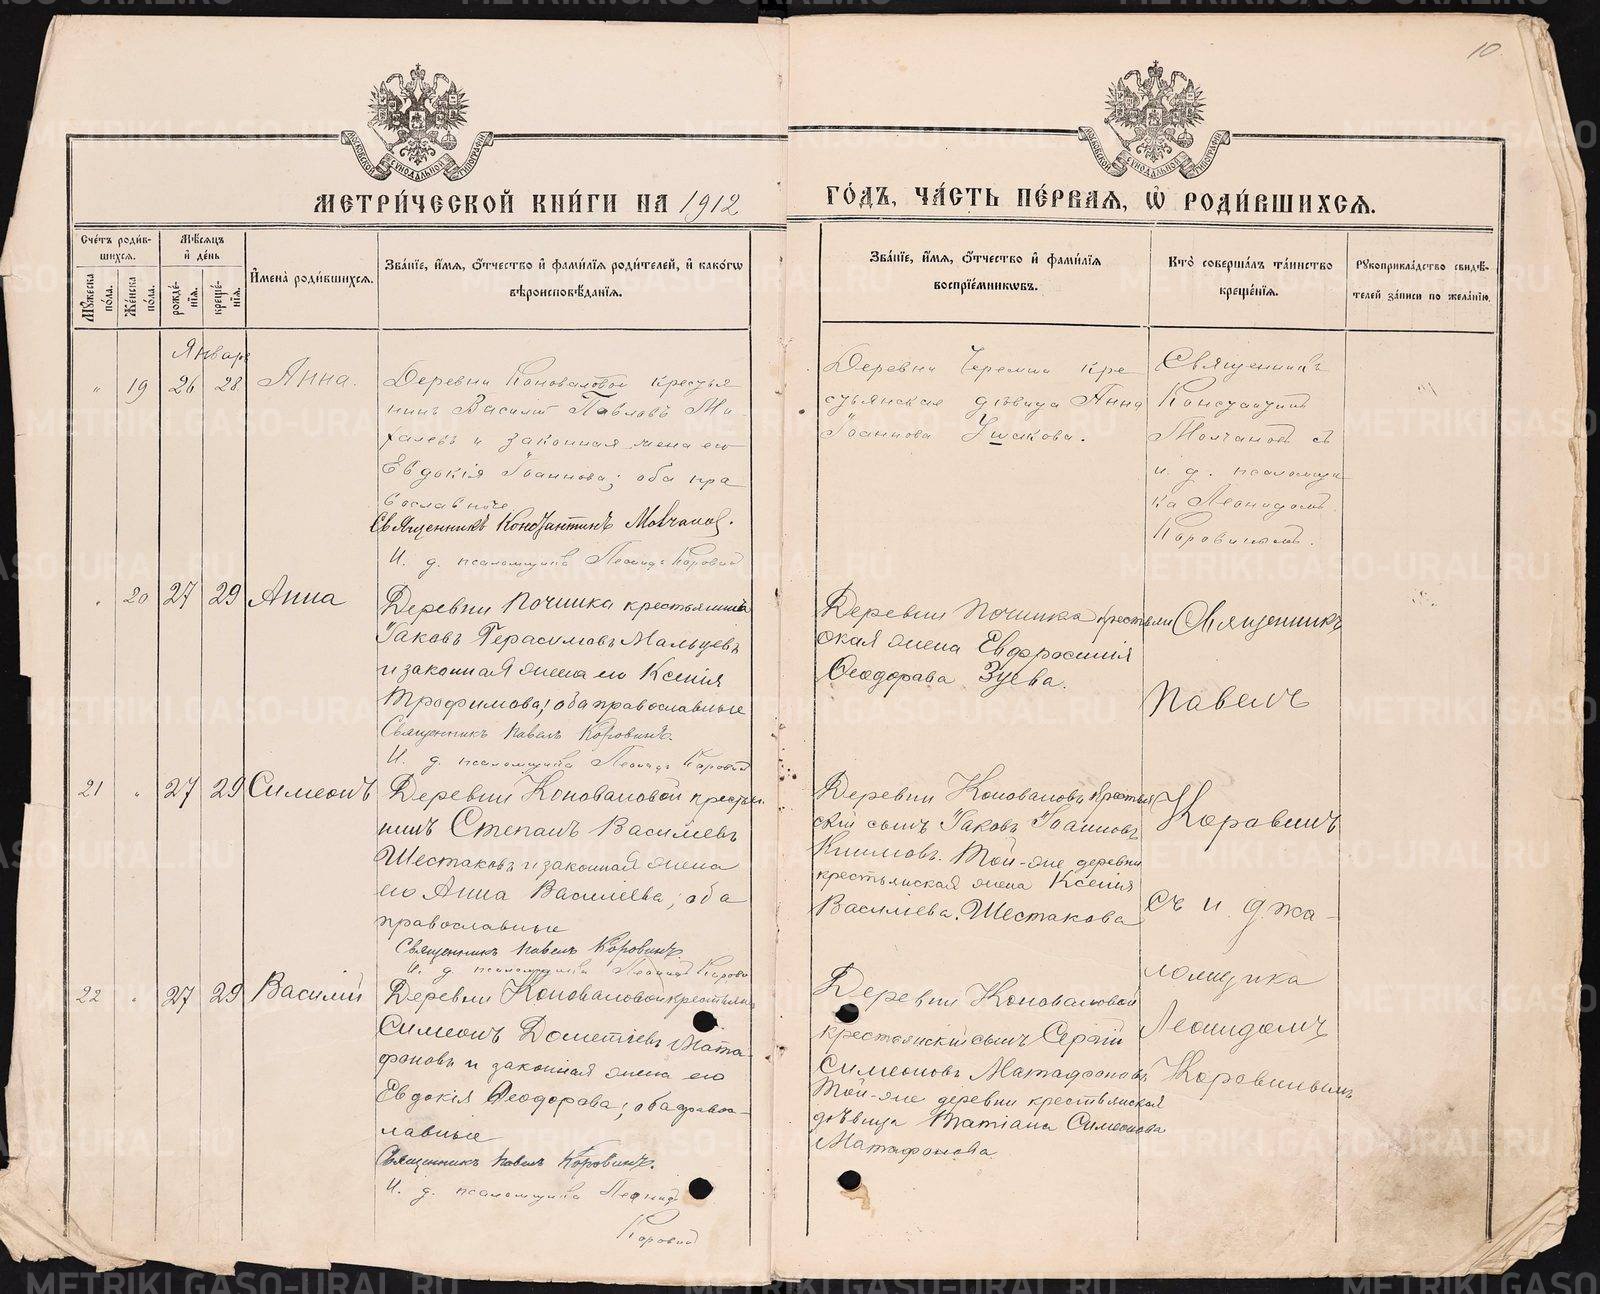 10
МОСКОВСКОЙ СѴНОДАЛЬНОЙ ТИПОГРАФІИ
МОСКОВСКОЙ СѴНОДАЛЬНОЙ ТИПОГРАФІИ
МЕТРИ́ЧЕСКОЙ КНИ́ГИ НА 1912
ГО́ДЪ, ЧА́СТЬ ПЕ́РВАѦ, Ѡ҆ РОДИ́ВШИХСѦ.
Сче́тъ роди́в-
шихсѧ.
Мꙋ́жеска по́ла.
Же́нска по́ла.
Мѣ́сѧцъ и҆ де́нь
рожде́-нїѧ.
креще́-нїѧ.
И҆мена̀ роди́вшихсѧ.
Зва́нїе, и҆́мѧ, ѻ҆́тчество и҆ фами́лїѧ роди́телей, и҆ како́гѡ
вѣроисповѣ́данїѧ.
Зва́нїе, и҆́мѧ, ѻ҆́тчество и҆ фами́лїѧ
воспрїе́мникѡвъ.
Кто̀ соверша́лъ та́инство
креще́нїѧ.
Рꙋкоприкла́дство свидѣ́-
телей за́писи по жела́нїю.
Январь
" 19 26 28 Анна.
Деревни Коноваловой крестья
нинъ Василій Павловъ Ми-
халевъ и законная жена его
Евдокія Іоаннова; оба пра
вославные
Священникъ Константинъ Молчановъ.
И. д. псаломщика Леонидъ Коровин
Деревни Черемши кре
стьянская дѣвица Анна
Іоаннова Ушакова.
Священникъ
Константинъ
Молчановъ съ
и. д. псаломщи
ка Леонидомъ
Коровинымъ.
" 20 27 29 Анна
Деревни Починка крестьянинъ
Іаковъ Герасимовъ Мальцевъ
и законная жена его Ксенія
Трофимова; оба православные
Священникъ Павелъ Коровинъ.
И. д. псаломщика Леонидъ Коровин
Деревни Починка крестьян
ская жена Евфросинія
Ѳеодорава Зуева.
Священникъ
Павелъ
21 " 27 29 Симеонъ
Деревни Коноваловой крестья
нинъ Степанъ Василіевъ
Шестаковъ и законная жена
его Анна Василіева; оба
православные
Священникъ Павелъ Коровинъ.
И. д. псаломщика Леонидъ Корови
Деревни Коноваловъ крестьян
скій сынъ Іаковъ Іоанновъ
Климовъ. Той-же деревни
крестьянская жена Ксенія
Василіева Шестакова
Коровинъ
съ и. д. пса-
22 " 27 29 Василій
Деревни Коноваловой крестьян
Симеонъ Дометіевъ Мата-
фоновъ и законная жена его
Евдокія Ѳеодорава; оба право-
лавные
Священникъ Павелъ Коровинъ.
И. д. псаломщика Леонид
Коровин
Деревни Коноваловой
крестьянскій сынъ Сергій
Симеоновъ Матафоновъ
Той-же деревни крестьянская
дѣвица Татіана Симеонова
Матафонова
ломщика
Леонидомъ
Коровинымъ
METRIKI.GASO-URAL.RU